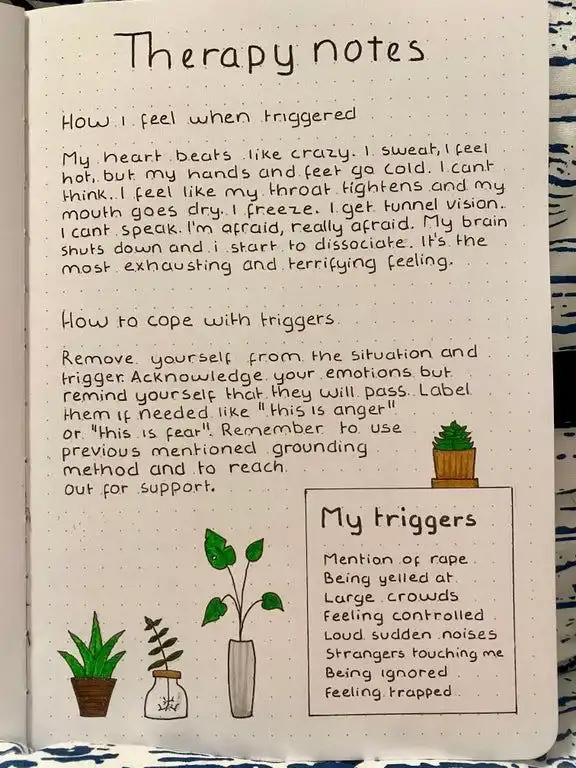 Therapy notes
How i feel when triggered
My heart beats like crazy. I sweat, I feel
hot, but my hands and feet go cold. I cant
think. I feel like my throat tightens and my
mouth goes dry. I freeze. I get tunnel vision.
I cant speak. I'm afraid, really afraid. My brain
shuts down and i start to dissociate. It's the
most exhausting and terrifying feeling.
How to cope with triggers
Remove yourself from the situation and
trigger. Acknowledge your emotions but
remind yourself that they will pass. Label
them if needed like "this is anger"
or "this is fear". Remember to use
previous mentioned grounding
method and to reach
out for support.
My triggers
Mention of rape
Being yelled at
Large crowds
Feeling controlled
Loud sudden noises
Strangers touching me
Being ignored
Feeling trapped